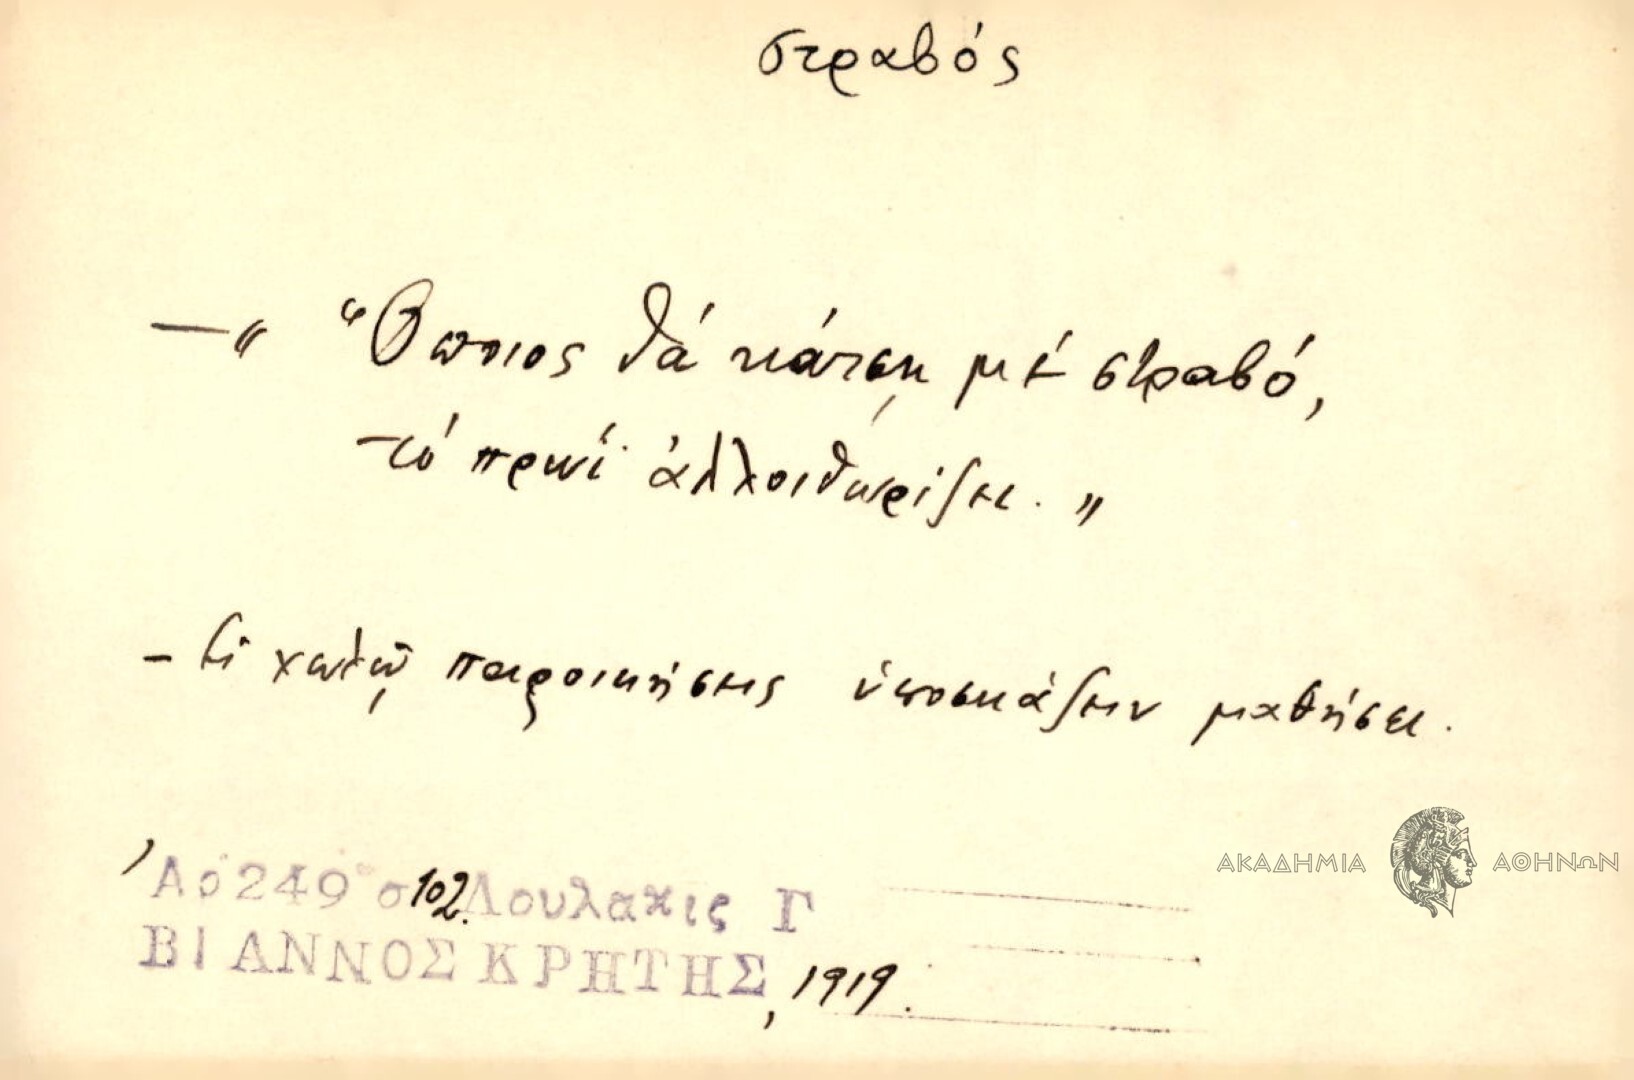 στραβός
— „ Ὅποιος θά κάτσῃ μέ στραβό,
τό πρωί ἀλλοιθωρίζει. „
- Εἰ χωλῷ παροικήσεις ὑποσκάζειν μαθήσει.
Αρ 249 σ 102. Λουλακις Γ
ΒΙΑΝΝΟΣ ΚΡΗΤΗΣ, 1919.
ΑΚΑΔΗΜΙΑ ΑΘΗΝΩΝ